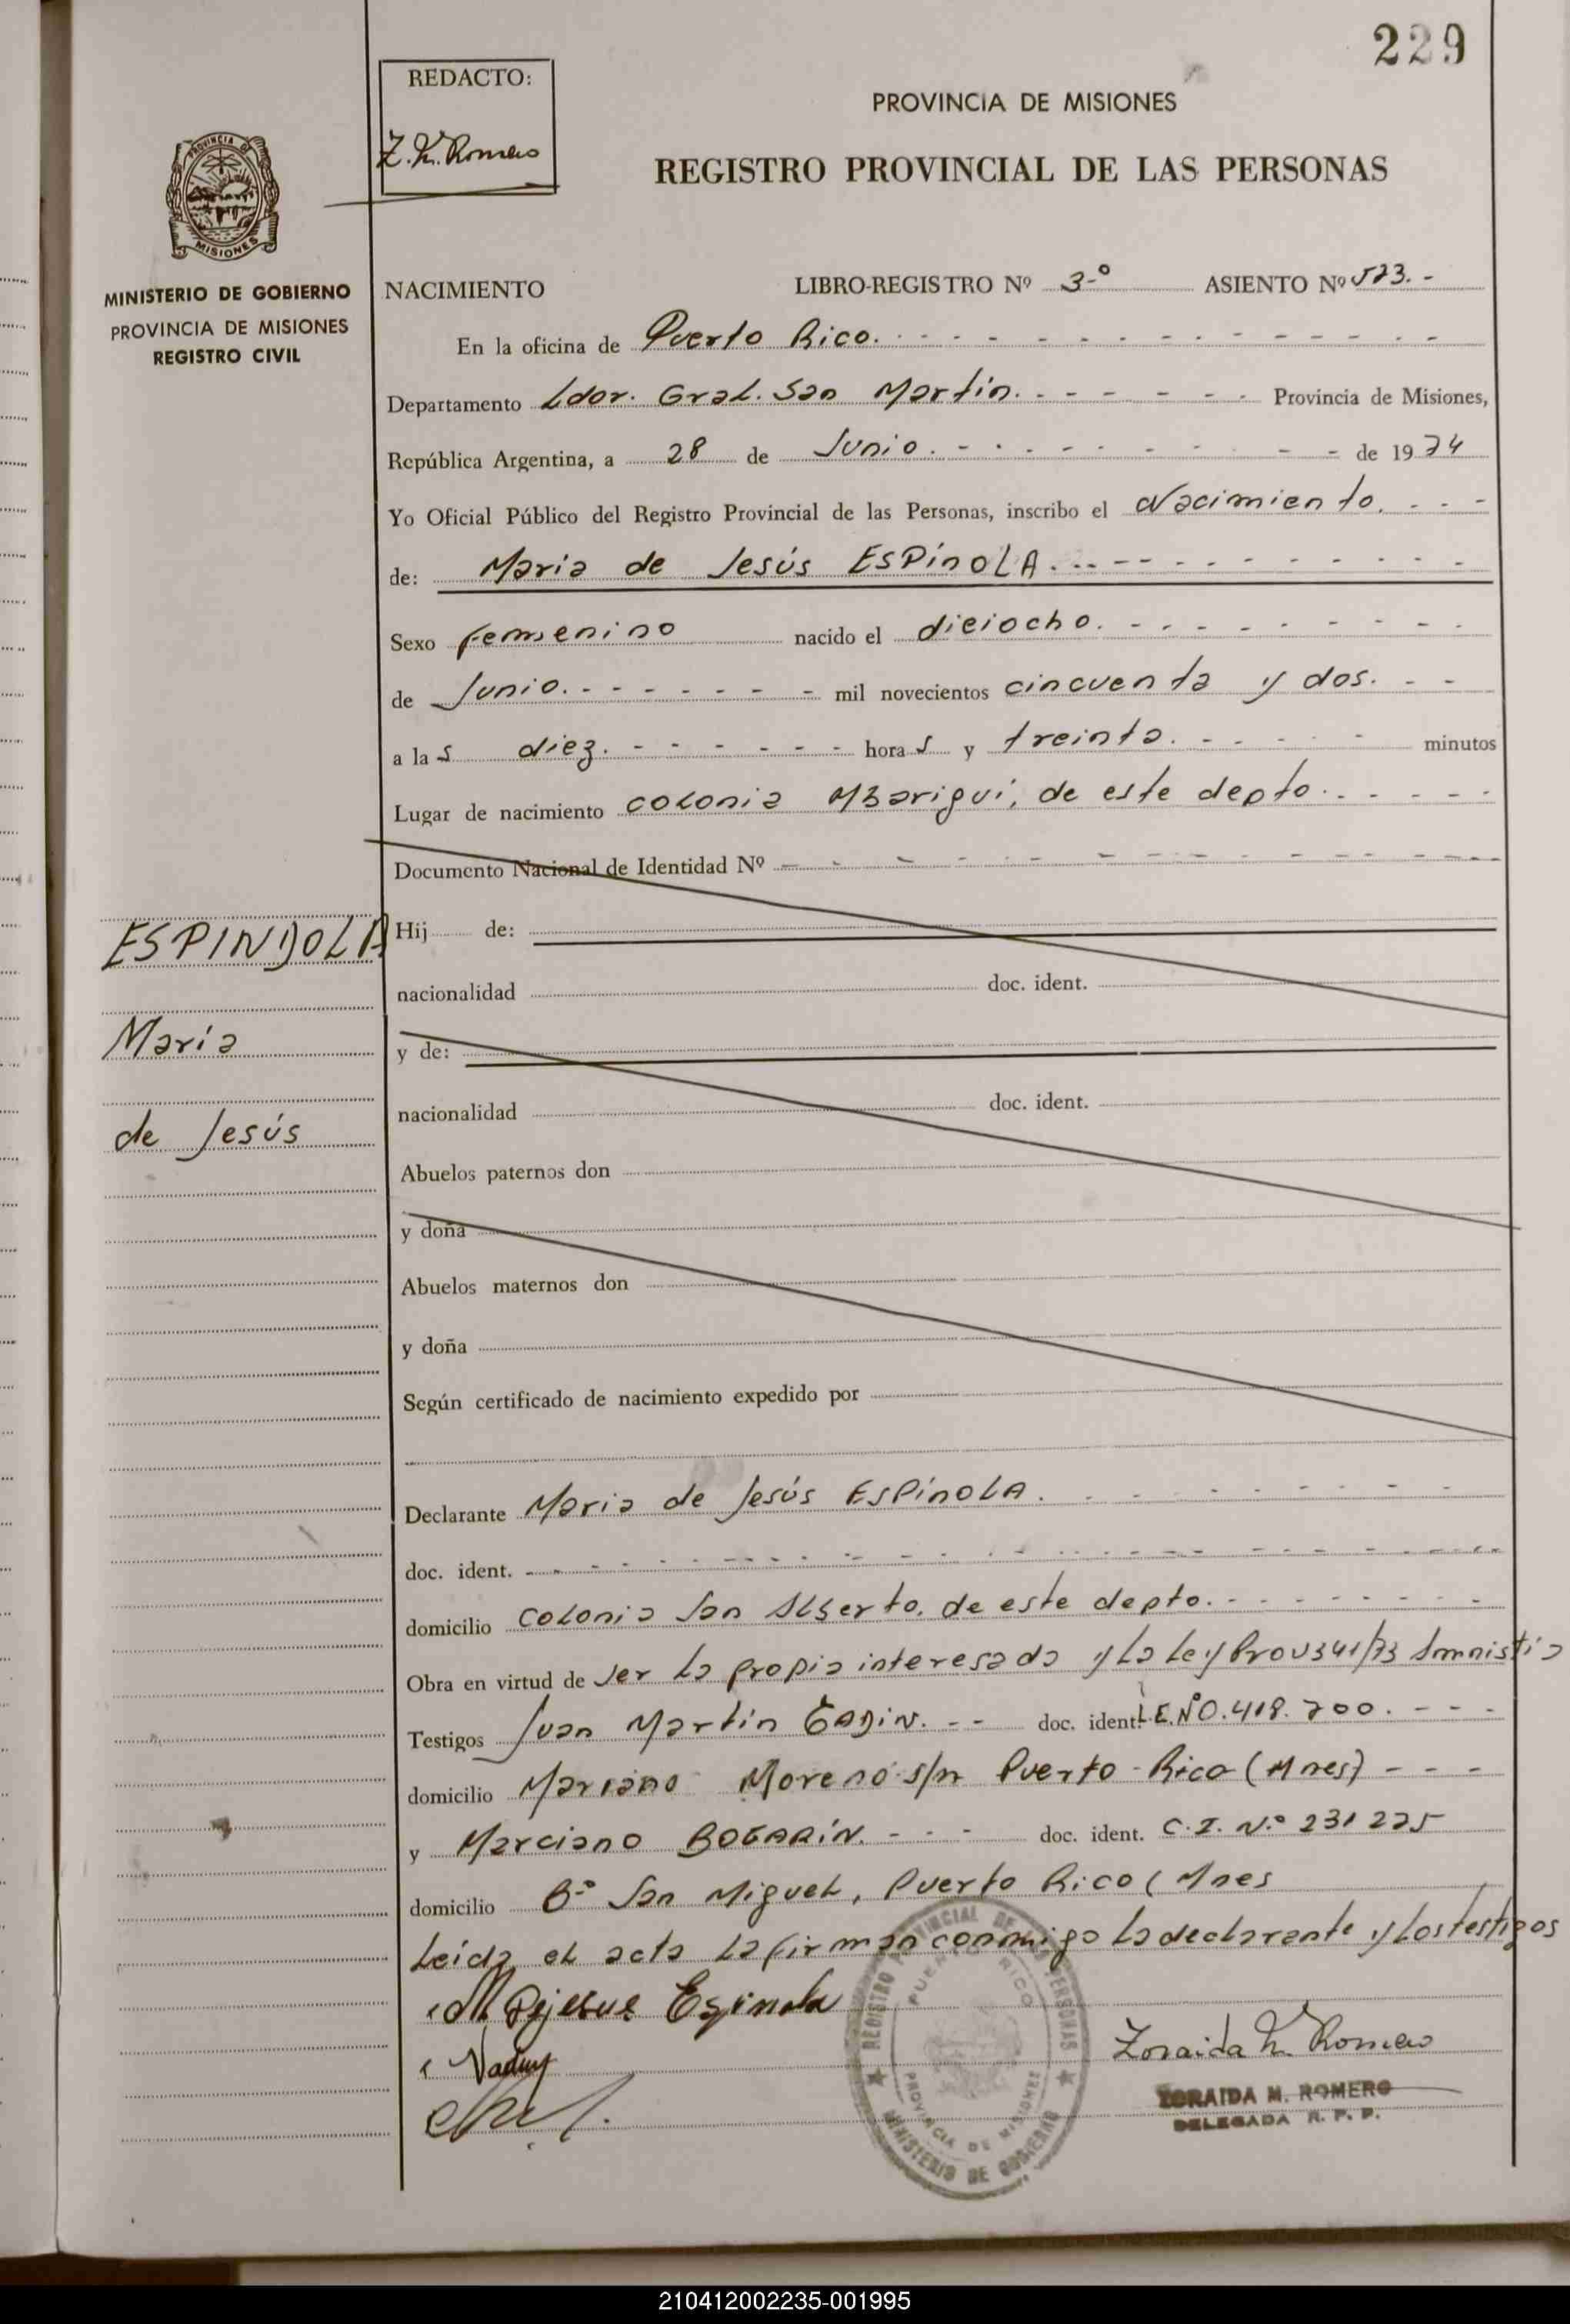 229
REDACTO:
Z. M. Romero
PROVINCIA DE MISIONES
REGISTRO PROVINCIAL DE LAS PERSONAS
PROVINCIA DE
MISIONES
MINISTERIO DE GOBIERNO
PROVINCIA DE MISIONES
REGISTRO CIVIL
NACIMIENTO LIBRO-REGISTRO Nº 3-º ASIENTO Nº 573.-
En la oficina de Puerto Rico.
Departamento Ldor. Gral. San Martín. Provincia de Misiones,
República Argentina, a 28 de Junio. de 1974
Yo Oficial Público del Registro Provincial de las Personas, inscribo el Nacimiento.
de: Maria de Jesús ESPínOLA.
Sexo femenino nacido el dieiocho.
de Junio. mil novecientos cincuenta y dos.
a las diez. horas y treinta. minutos
Lugar de nacimiento colonia Mbariguí, de este depto.
Documento Nacional de Identidad Nº
Hij de:
nacionalidad doc. ident.
y de:
nacionalidad doc. ident.
Abuelos paternos don
y doña
Abuelos maternos don
y doña
Según certificado de nacimiento expedido por
ESPINDOLA
María
de Jesús
Declarante Maria de Jesús ESPínOLA.
doc. ident.
domicilio Colonia San Alberto, de este depto.
Obra en virtud de ser la propia interesada y la Ley Prov 341/73 Amnistia
Testigos Juan Martin doc. ident. L.E.Nº 0.418.700.
domicilio Mariano Moreno s/n Puerto-Rico (Mnes)
y Marciano BOGARÍN. doc. ident. C.I. N.º 231 225
domicilio Bº San Miguel, Puerto Rico (Mnes
Leída el acta la firman conmigo la declarante y los testigos
M Dejesus Espinola
Zoraida M. Romero
ZORAIDA M. ROMERO
DELEGADA R. P. P.
REGISTRO PROVINCIAL DE LAS PERSONAS
PUERTO RICO
PROVINCIA DE MISIONES
MINISTERIO DE GOBIERNO
210412002235-001995